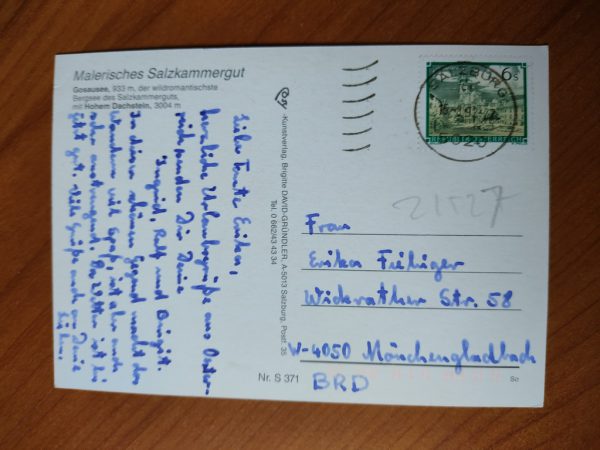 Malerisches Salzkammergut
Gosausee, 933 m, der wildromantischste
Bergsee des Salzkammerguts,
mit Hohem Dachstein, 3004 m
Liebe Tante Erika,
herzliche Urlaubsgrüße aus Öster-
reich senden Dir Deine
Ingrid, Ralf und Birgit.
In dieser schönen Gegend macht das
Wandern viel Spaß, ist aber auch
sehr anstrengend. Das Wetter ist bis
jetzt gut. Viele Grüße auch an Deine
-Kunstverlag, Brigitte DAVID-GRÜNDLER, A-5013 Salzburg, Postf. 35
Tel. 0 662/43 43 34
Nr. S 371
6 S
REPUBLIK ÖSTERREICH
SALZBURG
5020
21527
Frau
Erika Fehiger
Wickrather Str. 58
W-4050 Mönchengladbach
BRD
So